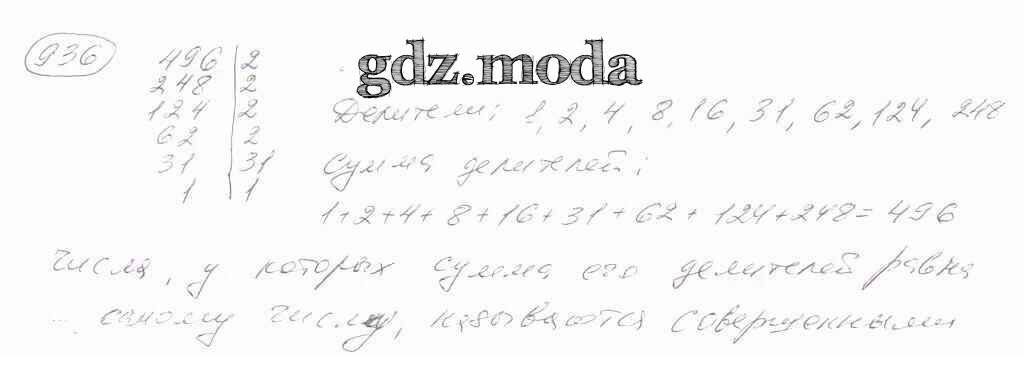 936
gdz.moda
496 | 2
248 | 2
124 | 2
62 | 2
31 | 31
1 | 1
Делители: 1, 2, 4, 8, 16, 31, 62, 124, 248
Сумма делителей:
1+2+4+8+16+31+62+124+248=496
Числа, у которых сумма его делителей равна
самому числу, называются совершенными